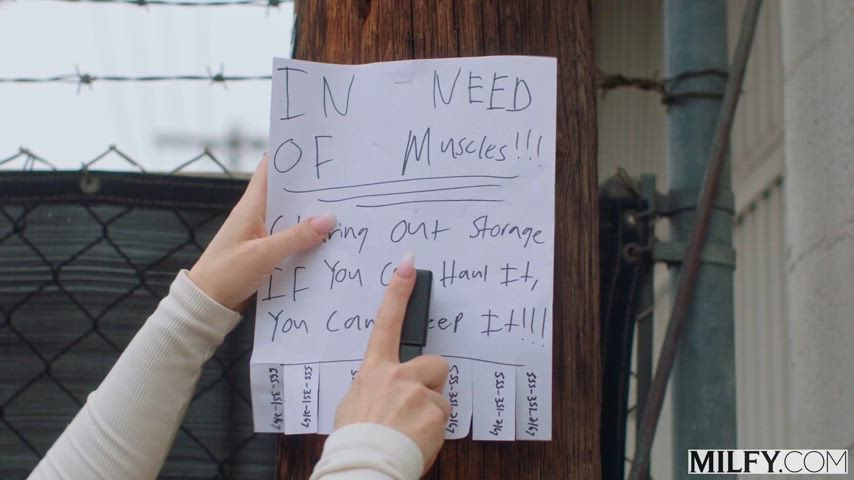 IN - NEED
OF Muscles!!!
Out Storage
IF You Haul It,
You Can It!!!
555-351-2167
555-351-2167
555-351-2167
555-351-2167
555-351-2167
MILFY.COM